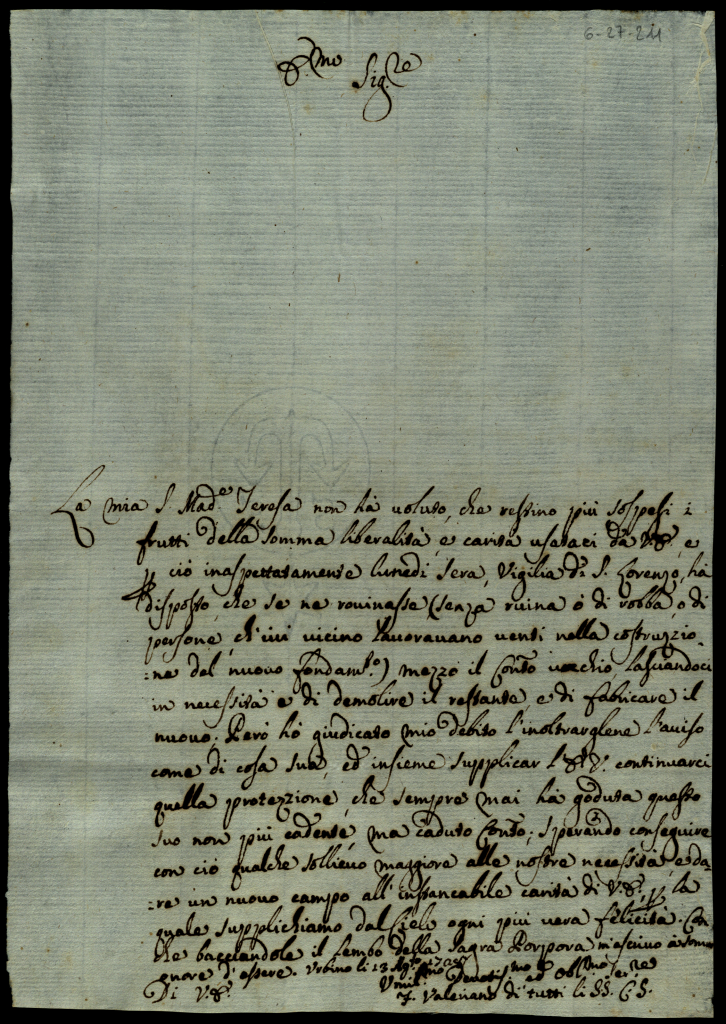 6-27-24
E.mo Sig.re
La mia S. Mad.e Teresa non hà voluto, che restino più sospesi i
frutti della somma liberalità, e carità usataci da V.E., e
p ciò inaspettatamente lunedì sera, Vigilia di S. Lorenzo, hà
disposto, che se ne rovinasse (senza ruina ò di robba, o di
persone, ch'ivi vicino lavoravano venti nella costruzzio-
:ne del nuovo fondam.to) mezzo il Con.to vecchio, lasciandoci
in necessità e di demolire il restante, e di fabricare il
nuovo. Però hò giudicato mio debito l'inoltrarglene l'aviso
come di cosa sua, ed insieme supplicar l'E.V. continuarci
quella protezzione, che sempre mai hà goduta questo
suo non più cadente, ma caduto Con.to; sperando conseguire
con ciò qualche sollievo maggiore alle nostre necessità, e da-
:re un nuovo campo all'instancabile carità di V.E., p la
quale supplichiamo dal Cielo ogni più vera felicità. Con
che bacciandole il lembo della Sagra Porpora m'ascrivo à
gnore d'essere. Urbino li 13 Ag.to
Di V.E. Umil.mo Devotis.mo ed Obl.mo
F. Valeriano di tutti li SS. C.S.